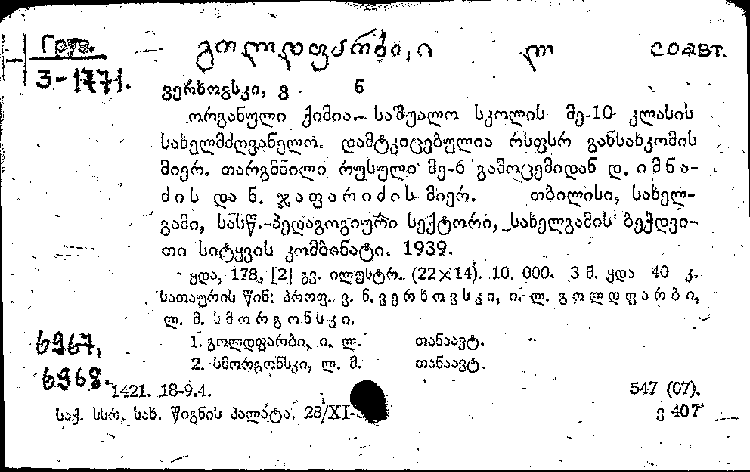 Груз.
გოლდფარბი, ი ლ соавт.
3-1771.
ვერხოვსკი, ვ ნ
ორგანული ქიმია.- საშუალო სკოლის მე-10 კლასის
სახელმძღვანელო. დამტკიცებულია რსფსრ განსახკომის
მიერ. თარგმნილი რუსული მე-6 გამოცემიდან დ. იმნა-
ძის და ნ. ჯაფარიძის მიერ. თბილისი, სახელ-
გამი, სასწ.-პედაგოგიური სექტორი, სახელგამის ბეჭდვი-
თი სიტყვის კომბინატი. 1939.
ყდა, 178, [2] გვ. ილუსტრ. (22×14). 10. 000. 3 მ. ყდა 40 კ.
სათაურის წინ: პროფ. ვ. ნ. ვერხოვსკი, ი. ლ. გოლდფარბი,
ლ. მ. სმორგონსკი.
1. გოლდფარბი, ი. ლ. თანაავტ.
2. სმორგონსკი, ლ. მ. თანაავტ.
6967,
6968.
1421. 18-9.4. 547 (07).
საქ. სსრ. სახ. წიგნის პალატა. 28/XI- ვ 407